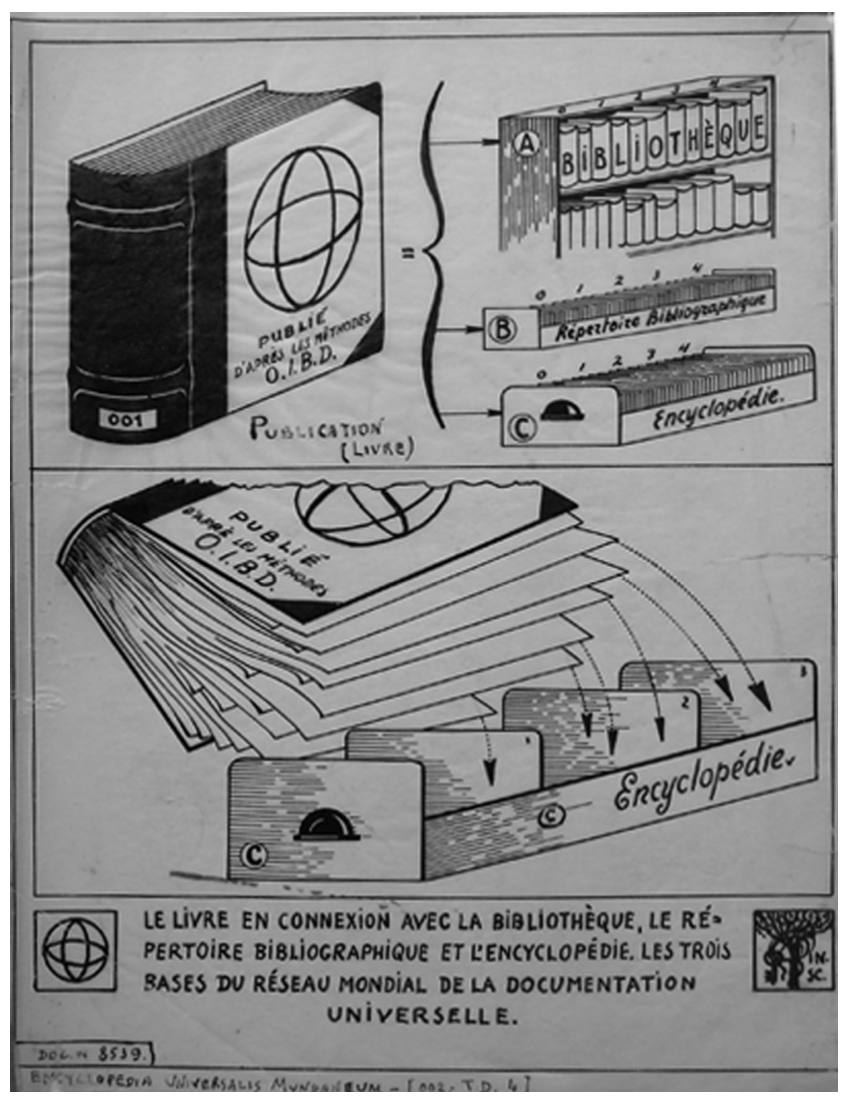 PUBLIÉ
D'APRÈS LES MÉTHODES
O.I.B.D.
001
PUBLICATION
(LIVRE)
=
0 1 2 3 4
A
BIBLIOTHÈQUE
0 1 2 3 4
B
Répertoire Bibliographique
0 1 2 3 4
C
Encyclopédie.
PUBLIÉ
D'APRÈS LES MÉTHODES
O.I.B.D.
1
2
3
C
C
Encyclopédie.
LE LIVRE EN CONNEXION AVEC LA BIBLIOTHÈQUE, LE RÉ-
PERTOIRE BIBLIOGRAPHIQUE ET L'ENCYCLOPÉDIE. LES TROIS
BASES DU RÉSEAU MONDIAL DE LA DOCUMENTATION
UNIVERSELLE.
IN.
SC.
DOC. N 8539.
ENCYCLOPEDIA UNIVERSALIS MUNDANEUM – [002- T.D. 4]